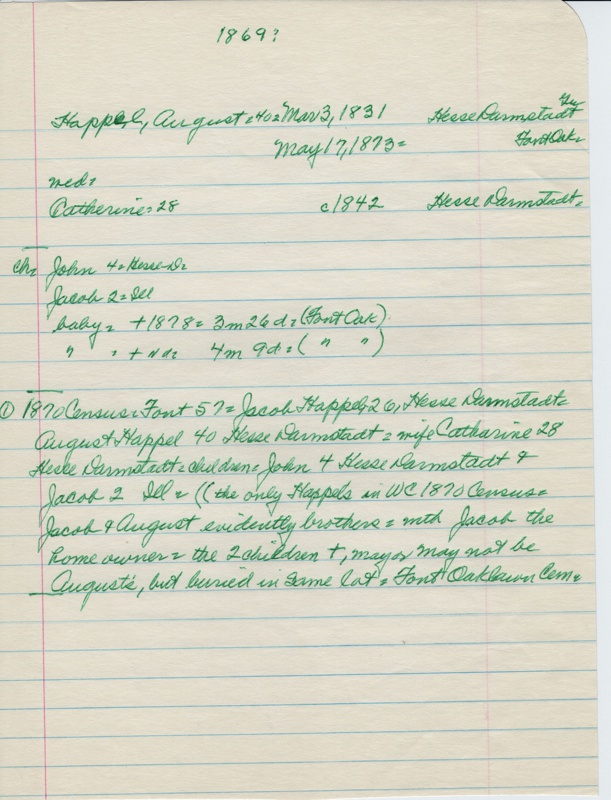 1869?
Happel, August = 40 = Mar 3, 1831 Hesse Darmstadt
May 17, 1873 = Font Oak =
med =
Catherine = 28 c1842 Hesse Darmstadt =
ch = John 4 = Hesse D =
Jacob 2 = Ill
baby = + 1878 = 3m 26d = (Font Oak)
" " + nd = 4m 9d = ( " " )
① 1870 Census = Font 57 = Jacob Happel 26, Hesse Darmstadt =
August Happel 40 Hesse Darmstadt = wife Catharine 28
Hesse Darmstadt = children = John 4 Hesse Darmstadt &
Jacob 2 Ill = ((the only Happels in WC 1870 Census =
Jacob & August evidently brothers = with Jacob the
home owner = the 2 children +, may or may not be
August's, but buried in same lot = Font Oaklawn Cem =